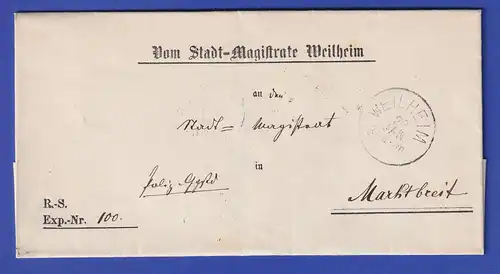 Vom Stadt-Magistrate Weilheim
an den
Stadt-Magistrat
in
Marktbreit
R.-S.
Exp.-Nr. 100.
WEILHEIM
JAN